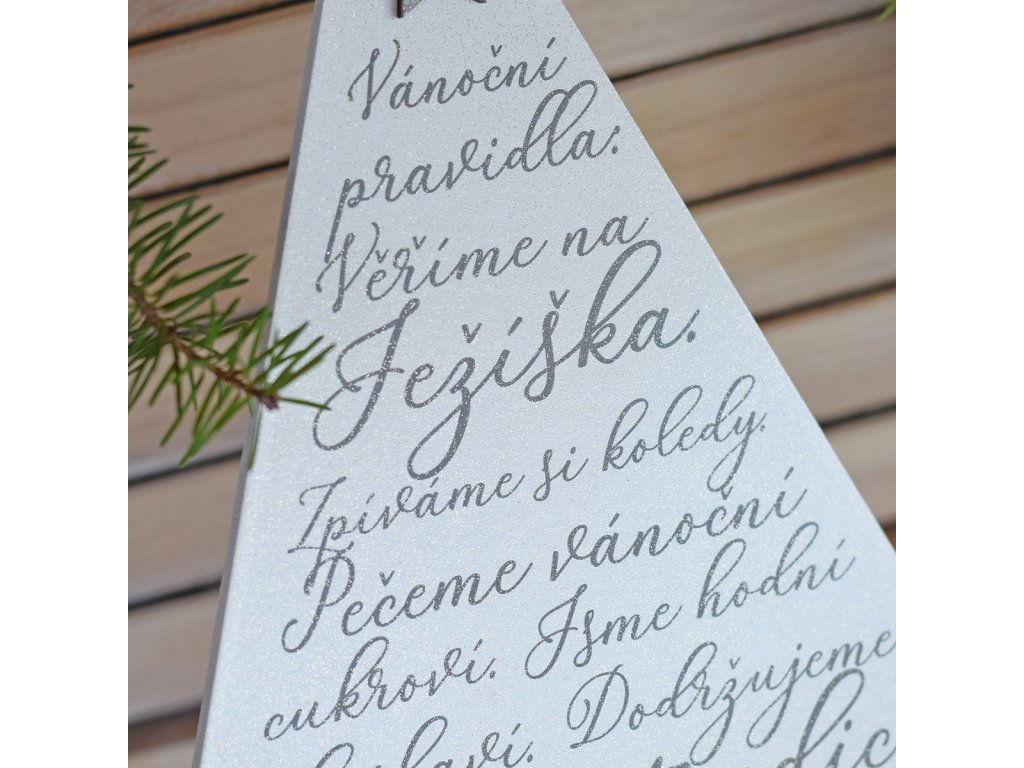 Vánoční
pravidla:
Věříme na
Ježíška.
Zpíváme si koledy.
Pečeme vánoční
cukroví. Jsme hodní
Dodržujeme